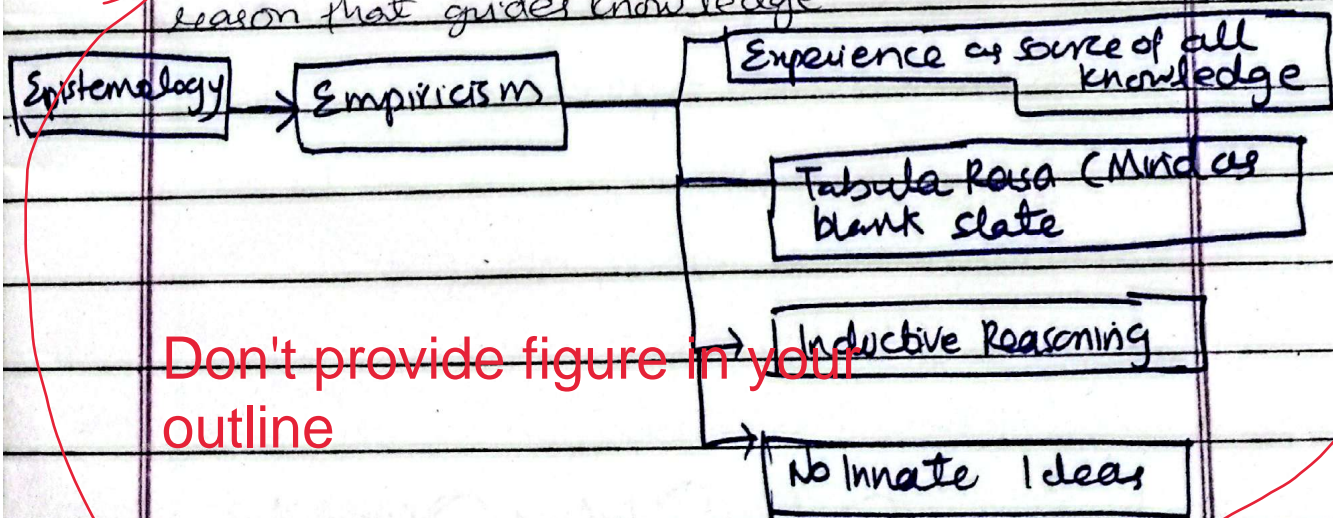 reason that guides knowledge
Epistemology
Empiricism
Experience as source of all
knowledge
Tabula Rasa (Mind as
blank slate
Inductive Reasoning
No Innate Ideas
Don't provide figure in your
outline